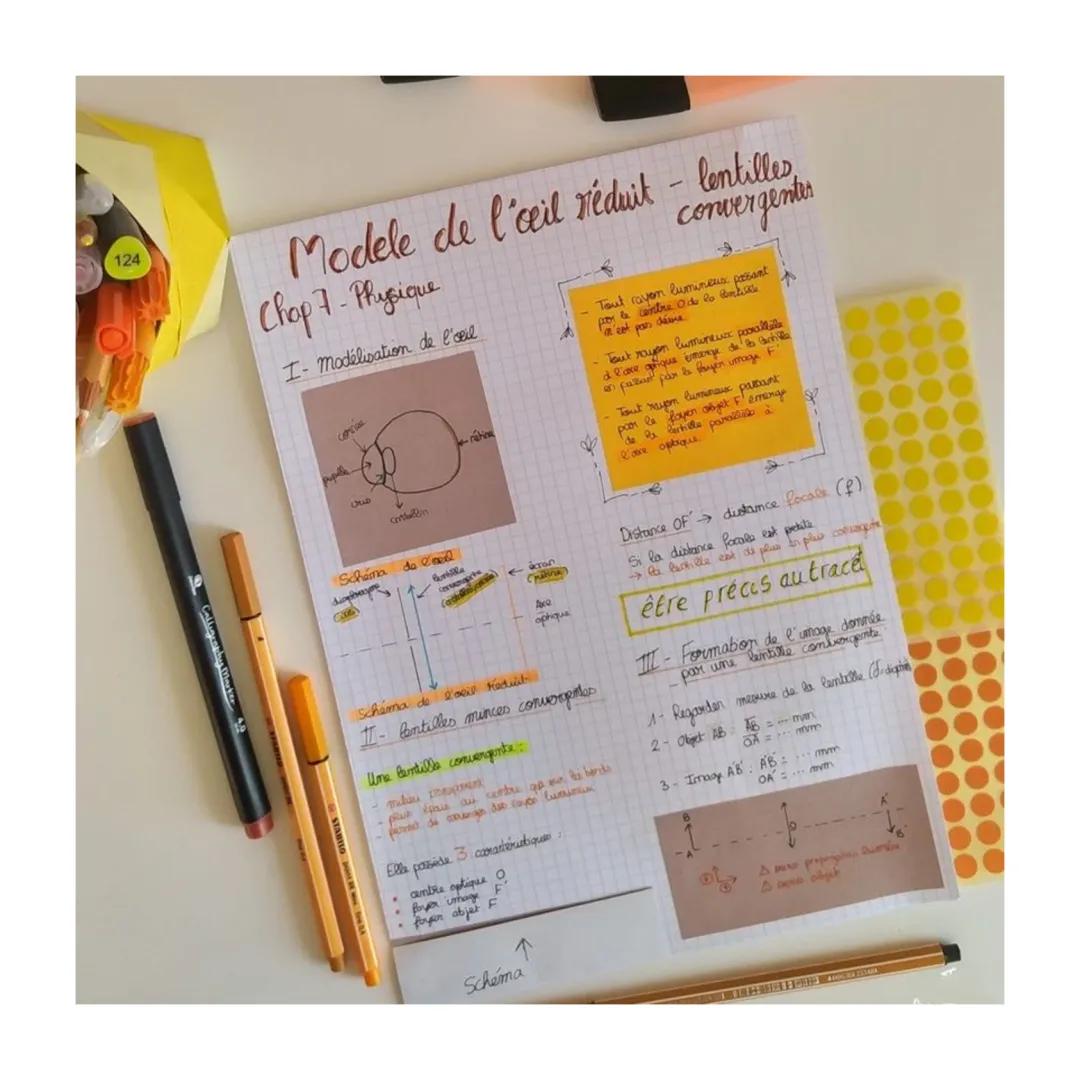 Modele de l'œil réduit - lentilles
convergentes
Chap 7 - Physique
I - Modélisation de l'œil
cornée
pupille
iris
cristallin
rétine
Schéma de l'œil
diaphragme
(iris)
lentille
convergente
écran
(rétine)
Axe
optique
Schéma de l'œil réduit
II - lentilles minces convergentes
Une lentille convergente :
- milieu transparent
- plus épais au centre que sur les bords
- permet de converger des rayons lumineux
Elle possède 3 caractéristiques :
• centre optique O
• foyer image F'
• foyer objet F
Schéma
- Tout rayon lumineux passant
par le centre O de la lentille
n'est pas dévié
- Tout rayon lumineux parallèle
à l'axe optique émerge de la lentille
en passant par le foyer image F'
- Tout rayon lumineux passant
par le foyer objet F émerge
de la lentille parallèle à
l'axe optique
Distance OF' → distance focale (f)
Si la distance focale est petite
→ la lentille est de plus en plus convergente
être précis au tracé
III - Formation de l'image donnée
par une lentille convergente
1 - Regarder mesure de la lentille
2 - Objet AB : AB = ... mm
OA = ... mm
3 - Image A'B' : A'B' = ... mm
OA' = ... mm
B
A
O
A'
B'
⚠ sens propagation lumière
⚠ sens objet
124
Calligraphy Marker
4.0
STABILO
STABILO